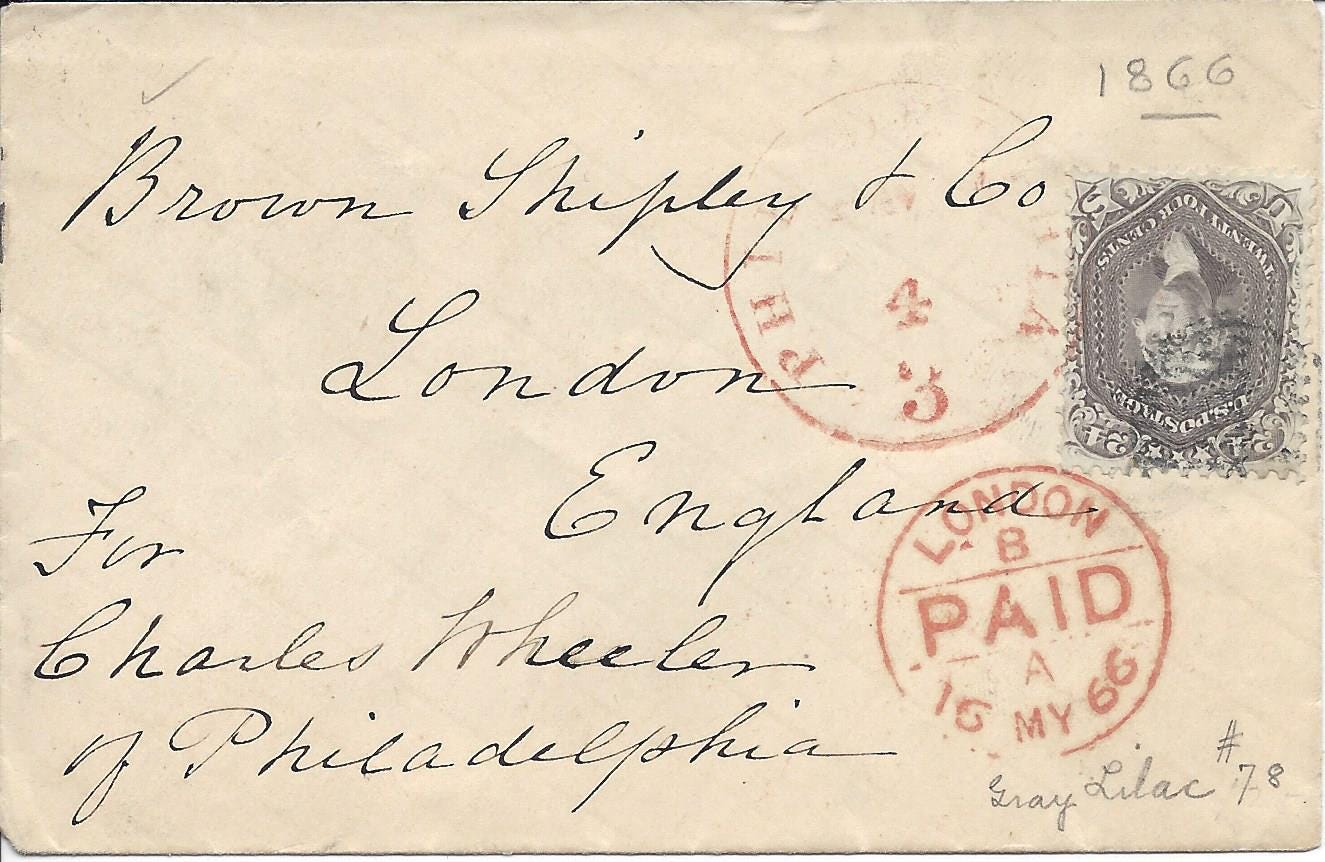 1866
Brown Shipley & Co
London
England
For
Charles Wheeler
of Philadelphia
PHIL
A
4
3
U S
TWENTY FOUR CENTS.
U.S. POSTAGE
24 24
LONDON
B
PAID
A
15 MY 66
#
Gray Lilac 78